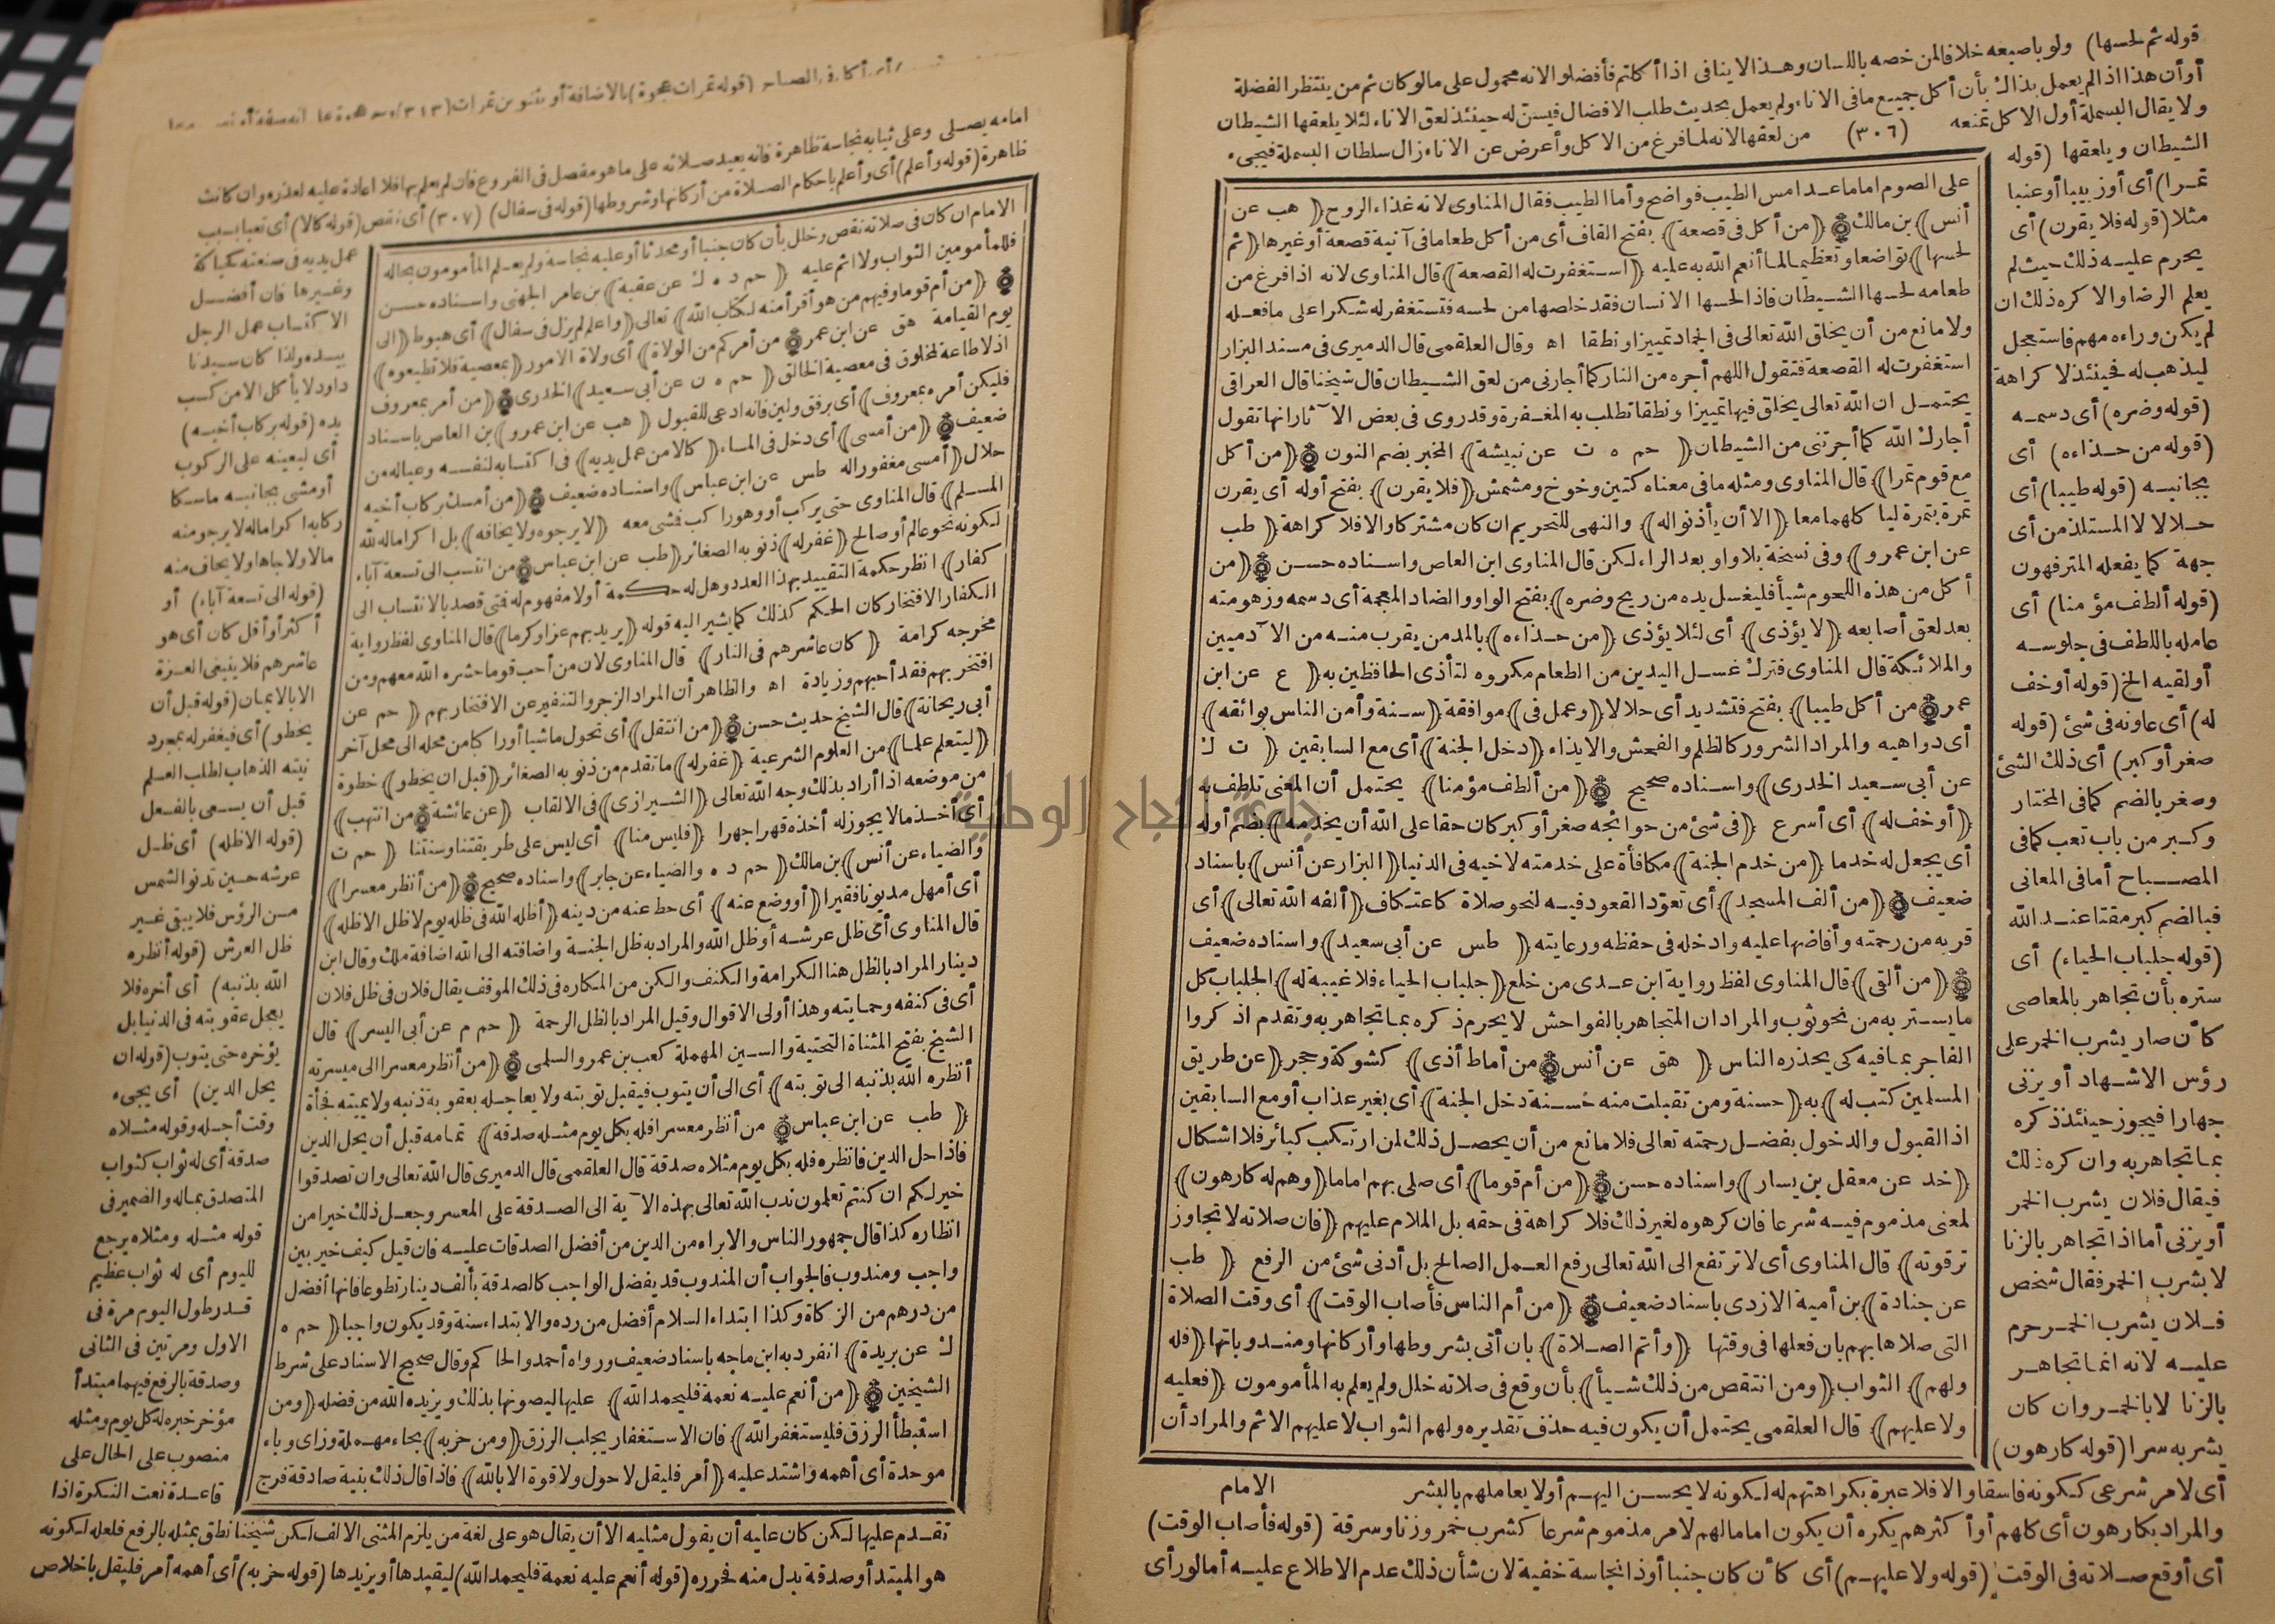 قوله ثم لحسها) ولو باصبعه خلافا لمن خصه باللسان وهذا لا ينافى اذا أكلتم فأفضلوا لانه محمول على مالو كان ثم من ينتظر الفضلة
أوأن هذا اذا لم يعمل بذاك بأن أكل جميع مافى الاناء ولم يعمل بحديث طلب الافضال فيسن له حينئذ لعق الاناء لئلا يلعقها الشيطان
ولا يقال البسملة أول الاكل تمنعه (٣٠٦) من لعقها لانه لما فرغ من الاكل وأعرض عن الاناء زال سلطان البسملة فيجىء
الشيطان ويلعقها (قوله
تمرا) أى أوزبيبا أو عنبا
مثلا (قوله فلا يقرن) أى
يحرم عليه ذلك حيث لم
يعلم الرضا والا كره ذلك ان
لم يكن وراءه مهم فاستعجل
ليذهب له فحينئذ لا كراهة
(قوله وضره) أى دسمه
(قوله من حذاءه) أى
بجانبه (قوله طيبا) أى
حلالا لا المستلذ من أى
جهة كما يفعله المترفهون
(قوله ألطف مؤمنا) أى
عامله باللطف فى جلوسه
أولقيه الخ (قوله أوخف
له) أى عاونه فى شئ (قوله
صغر أوكبر) أى ذلك الشئ
وصغر بالضم كمافى المختار
وكبر من باب تعب كمافى
المصباح أما فى المعانى
فبالضم كبر مقتا عند الله
(قوله جلباب الحياء) أى
ستره بأن تجاهر بالمعاصى
كأن صار يشرب الخمر على
رؤس الاشهاد أو يزنى
جهارا فيجوز حينئذ ذكره
بما تجاهر به وان كره ذلك
فيقال فلان يشرب الخمر
أو يزنى أما اذا تجاهر بالزنا
لا بشرب الخمر فقال شخص
فلان يشرب الخمر حرم
عليه لانه انما تجاهر
بالزنا لا بالخمر وان كان
يشربه سرا (قوله كارهون)
على الصوم اماما عدا مس الطيب فواضح وأما الطيب فقال المناوى لانه غذاء الروح ﴿هب عن
أنس﴾ بن مالك ﴿من أكل فى قصعة﴾ بفتح القاف أى من أكل طعاما فى آنية قصعة أو غيرها ﴿ثم
لحسها﴾ تواضعا وتعظيما لما أنعم الله به عليه ﴿استغفرت له القصعة﴾ قال المناوى لانه اذا فرغ من
طعامه لحسها الشيطان فاذا لحسها الانسان فقد خلصها من لحسه فتستغفر له شكرا على مافعله
ولا مانع من أن يخلق الله تعالى فى الجماد تمييزا ونطقا اه وقال العلقمى قال الدميرى فى مسند البزار
استغفرت له القصعة فتقول اللهم أجره من النار كما أجارنى من لعق الشيطان قال شيخنا قال العراقى
يحتمل ان الله تعالى يخلق فيها تمييزا ونطقا تطلب به المغفرة وقد روى فى بعض الآثار انها تقول
أجارك الله كما أجرتنى من الشيطان ﴿حم ه ت عن نبيشة﴾ الخير بضم النون ﴿من أكل
مع قوم تمرا﴾ قال المناوى ومثله مافى معناه كتين وخوخ ومشمش ﴿فلا يقرن﴾ بفتح أوله أى يقرن
تمرة بتمرة ليأكلهما معا ﴿الا أن يأذنوا له﴾ والنهى للتحريم ان كان مشتركا والا فلا كراهة ﴿طب
عن ابن عمرو﴾ وفى نسخة بلا واو بعد الراء لكن قال المناوى ابن العاص واسناده حسن ﴿من
أكل من هذه اللحوم شيأ فليغسل يده من ريح وضره﴾ بفتح الواو والضاد المعجمة أى دسمه وزهومته
بعد لعق أصابعه ﴿لا يؤذى﴾ أى لئلا يؤذى ﴿من حذاءه﴾ بالمد من يقرب منه من الآدميين
والملائكة قال المناوى فترك غسل اليدين من الطعام مكروه لتأذى الحافظين به ﴿ع عن ابن
عمر من أكل طيبا﴾ بفتح فتشديد أى حلالا ﴿وعمل فى﴾ موافقة ﴿سنة وأمن الناس بوائقه﴾
أى دواهيه والمراد الشرور كالظلم والفحش والايذاء ﴿دخل الجنة﴾ أى مع السابقين ﴿ت ك
عن أبى سعيد الخدرى﴾ واسناده صحيح ﴿من ألطف مؤمنا﴾ يحتمل أن المعنى تلطف به
﴿أوخف له﴾ أى أسرع ﴿فى شئ من حوائجه صغر أوكبر كان حقا على الله أن يخدمه﴾ بضم أوله
أى يجعل له خدما ﴿من خدم الجنة﴾ مكافأة على خدمته لاخيه فى الدنيا ﴿البزار عن أنس﴾ باسناد
ضعيف ﴿من ألف المسجد﴾ أى تعود القعود فيه لنحو صلاة كاعتكاف ﴿ألفه الله تعالى﴾ أى
قربه من رحمته وأفاضها عليه وادخله فى حفظه ورعايته ﴿طس عن أبى سعيد﴾ واسناده ضعيف
﴿من ألقى﴾ قال المناوى لفظ رواية ابن عدى من خلع ﴿جلباب الحياء فلا غيبة له﴾ الجلباب كل
ما يستتر به من نحو ثوب والمراد ان المتجاهر بالفواحش لا يحرم ذكره بما تجاهر به وتقدم اذكروا
الفاجر بما فيه كى يحذره الناس ﴿هق عن أنس من أماط أذى﴾ كشوكة وحجر ﴿عن طريق
المسلمين كتب له﴾ به ﴿حسنة ومن تقبلت منه حسنة دخل الجنة﴾ أى بغير عذاب أو مع السابقين
اذ القبول والدخول بفضل رحمته تعالى فلا مانع من أن يحصل ذلك لمن ارتكب كبائر فلا اشكال
﴿خد عن معقل بن يسار﴾ واسناده حسن ﴿من أم قوما﴾ أى صلى بهم اماما ﴿وهم له كارهون﴾
لمعنى مذموم فيه شرعا فان كرهوه لغير ذلك فلا كراهة فى حقه بل الملام عليهم ﴿فان صلاته لا تجاوز
ترقوته﴾ قال المناوى أى لا ترتفع الى الله تعالى رفع العمل الصالح بل أدنى شئ من الرفع ﴿طب
عن جنادة﴾ بن أمية الازدى باسناد ضعيف ﴿من أم الناس فأصاب الوقت﴾ أى وقت الصلاة
التى صلاها بهم بان فعلها فى وقتها ﴿وأتم الصلاة﴾ بان أتى بشروطها وأركانها ومندوباتها ﴿فله
ولهم﴾ الثواب ﴿ومن انتقص من ذلك شيأ﴾ بأن وقع فى صلاته خلل ولم يعلم به المأمومون ﴿فعليه
ولا عليهم﴾ قال العلقمى يحتمل أن يكون فيه حذف تقديره ولهم الثواب لا عليهم الاثم والمراد أن
أى لامر شرعى ككونه فاسقا والا فلا عبرة بكراهتهم له لكونه لا يحسن اليهم أولا يعاملهم بالبشر الامام
والمراد بكارهون أى كلهم أو أكثرهم يكره أن يكون اماما لهم لامر مذموم شرعا كشرب خمر وزنا وسرقة (قوله فأصاب الوقت)
أى أوقع صلاته فى الوقت (قوله ولا عليهم) أى كأن كان جنبا أوذا نجاسة خفية لان شأن ذلك عدم الاطلاع عليه أما لو رأى
أكل فى الصباح (قوله تمرات عجوة) بالاضافة أو بتنوين تمرات
امامه يصلى وعلى ثيابه نجاسة ظاهرة فانه يعيد صلاته على ما هو مفصل فى الفروع فان لم يعلم بها فلا اعادة عليه لعذره وان كانت
ظاهرة (قوله وأعلم) أى وأعلم باحكام الصلاة من أركانها وشروطها (قوله فى سفال) (٣٠٧) أى نقص (قوله كالا) أى تعبا بسبب
عمل يديه فى صنعته كحياكة
وغيرها فان أفضل
الاكتساب عمل الرجل
بيده ولذا كان سيدنا
داود لا يأكل الا من كسب
يده (قوله بركاب أخيه)
أى ليعينه على الركوب
أو مشى بجانبه ماسكا
ركابه اكراما له لا يرجو منه
مالا ولا جاها ولا يخاف منه
(قوله الى تسعة آباء) أو
أكثر أو أقل كان أى هو
عاشرهم فلا ينبغى العزة
الا بالايمان (قوله قبل أن
يخطو) أى فيغفر له بمجرد
نيته الذهاب لطلب العلم
قبل أن يسعى بالفعل
(قوله الاظله) أى ظل
عرشه حين تدنو الشمس
من الرؤس فلا يبقى غير
ظل العرش (قوله أنظره
الله بذنبه) أى أخره فلا
يعجل عقوبته فى الدنيا بل
يؤخره حتى يتوب (قوله ان
يحل الدين) أى يجىء
وقت أجله وقوله مثلاه
صدقة أى له ثواب كثواب
المتصدق بماله والضمير فى
قوله مثله ومثلاه يرجع
لليوم أى له ثواب عظيم
قدر طول اليوم مرة فى
الاول ومرتين فى الثانى
وصدقة بالرفع فيهما مبتدأ
مؤخر خبره له كل يوم ومثله
منصوب على الحال على
قاعدة نعت النكرة اذا
الامام ان كان فى صلاته نقص وخلل بأن كان جنبا أو محدثا أو عليه نجاسة ولم يعلم المأمومون بحاله
فللمأمومين الثواب ولا اثم عليه ﴿حم د ه ك عن عقبة﴾ بن عامر الجهنى واسناده حسن
﴿من أم قوما وفيهم من هو أقرأ منه لكتاب الله﴾ تعالى ﴿وأعلم لم يزل فى سفال﴾ أى هبوط ﴿الى
يوم القيامة هق عن ابن عمر من أمركم من الولاة﴾ أى ولاة الامور ﴿بمعصية فلا تطيعوه﴾
اذ لا طاعة لمخلوق فى معصية الخالق ﴿حم ه ن عن أبى سعيد﴾ الخدرى ﴿من أمر بمعروف
فليكن أمره بمعروف﴾ أى برفق ولين فانه ادعى للقبول ﴿هب عن ابن عمرو﴾ بن العاص باسناد
ضعيف ﴿من أمسى﴾ أى دخل فى المساء ﴿كالا من عمل يديه﴾ فى اكتسابه لنفسه وعياله من
حلال ﴿أمسى مغفورا له طس عن ابن عباس﴾ واسناده ضعيف ﴿من أمسك بركاب أخيه
المسلم﴾ قال المناوى حتى يركب أو وهو راكب فمشى معه ﴿لا يرجوه ولا يخافه﴾ بل اكراما له لله
لكونه نحو عالم أو صالح ﴿غفر له﴾ ذنوبه الصغائر ﴿طب عن ابن عباس من انتسب الى تسعة آباء
كفار﴾ انظر حكمة التقييد بهذا العدد وهل له حكمة أولا مفهوم له فمتى قصد بالانتساب الى
الكفار الافتخار كان الحكم كذلك كما يشير اليه قوله ﴿يريد بهم عزا وكرما﴾ قال المناوى لفظ رواية
مخرجه كرامة ﴿كان عاشرهم فى النار﴾ قال المناوى لان من أحب قوما حشره الله معهم ومن
افتخر بهم فقد أحبهم وزيادة اه والظاهر أن المراد الزجر والتنفير عن الافتخار بهم ﴿حم عن
أبى ريحانة﴾ قال الشيخ حديث حسن ﴿من انتقل﴾ أى تحول ماشيا أو راكبا من محله الى محل آخر
﴿ليتعلم علما﴾ من العلوم الشرعية ﴿غفر له﴾ ما تقدم من ذنوبه الصغائر ﴿قبل ان يخطو﴾ خطوة
من موضعه اذا أراد بذلك وجه الله تعالى ﴿الشيرازى﴾ فى الالقاب ﴿عن عائشة من انتهب﴾
أى أخذ مالا يجوز له أخذه قهرا جهرا ﴿فليس منا﴾ أى ليس على طريقتنا وسنتنا ﴿حم ت
والضياء عن أنس﴾ بن مالك ﴿حم د ه والضياء عن جابر﴾ واسناده صحيح ﴿من أنظر معسرا﴾
أى أمهل مديونا فقيرا ﴿أو وضع عنه﴾ أى حط عنه من دينه ﴿أظله الله فى ظله يوم لا ظل الا ظله﴾
قال المناوى أى ظل عرشه أو ظل الله والمراد به ظل الجنة واضافته الى الله اضافة ملك وقال ابن
دينار المراد بالظل هنا الكرامة والكنف والكن من المكاره فى ذلك الموقف يقال فلان فى ظل فلان
أى فى كنفه وحمايته وهذا أولى الاقوال وقيل المراد بالظل الرحمة ﴿حم م عن أبى اليسر﴾ قال
الشيخ بفتح المثناة التحتية والسين المهملة كعب بن عمرو السلمى ﴿من أنظر معسرا الى ميسرته
أنظره الله بذنبه الى توبته﴾ أى الى أن يتوب فيقبل توبته ولا يعاجله بعقوبة ذنبه ولا يميته فجأة
﴿طب عن ابن عباس من أنظر معسرا فله بكل يوم مثله صدقة﴾ تمامه قبل أن يحل الدين
فاذا حل الدين فانظره فله بكل يوم مثلاه صدقة قال العلقمى قال الدميرى قال الله تعالى وان تصدقوا
خير لكم ان كنتم تعلمون ندب الله تعالى بهذه الآية الى الصدقة على المعسر وجعل ذلك خيرا من
انظاره كذا قال جمهور الناس والابراء من الدين من أفضل الصدقات عليه فان قيل كيف خير بين
واجب ومندوب فالجواب أن المندوب قد يفضل الواجب كالصدقة بألف دينار تطوعا فانها أفضل
من درهم من الزكاة وكذا ابتداء السلام أفضل من رده والابتداء سنة وقد يكون واجبا ﴿حم ه
ك عن بريدة﴾ انفرد به ابن ماجه باسناد ضعيف ورواه أحمد والحاكم وقال صحيح الاسناد على شرط
الشيخين ﴿من أنعم عليه نعمة فليحمد الله﴾ عليها ليصونها بذلك ويزيده الله من فضله ﴿ومن
استبطأ الرزق فليستغفر الله﴾ فان الاستغفار يجلب الرزق ﴿ومن حزبه﴾ بحاء مهملة وزاى وباء
موحدة أى أهمه واشتد عليه ﴿أمر فليقل لا حول ولا قوة الا بالله﴾ فاذا قال ذلك بنية صادقة فرج
تقدم عليها لكن كان عليه أن يقول مثليه الا أن يقال هو على لغة من يلزم المثنى الالف لكن شيخنا نطق بمثله بالرفع فلعله لكونه
هو المبتدأ وصدقة بدل منه فحرره (قوله أنعم عليه نعمة فليحمد الله) ليقيدها أو يزيدها (قوله حزبه) أى أهمه أمر فليقل باخلاص
جامعة النجاح الوطنية